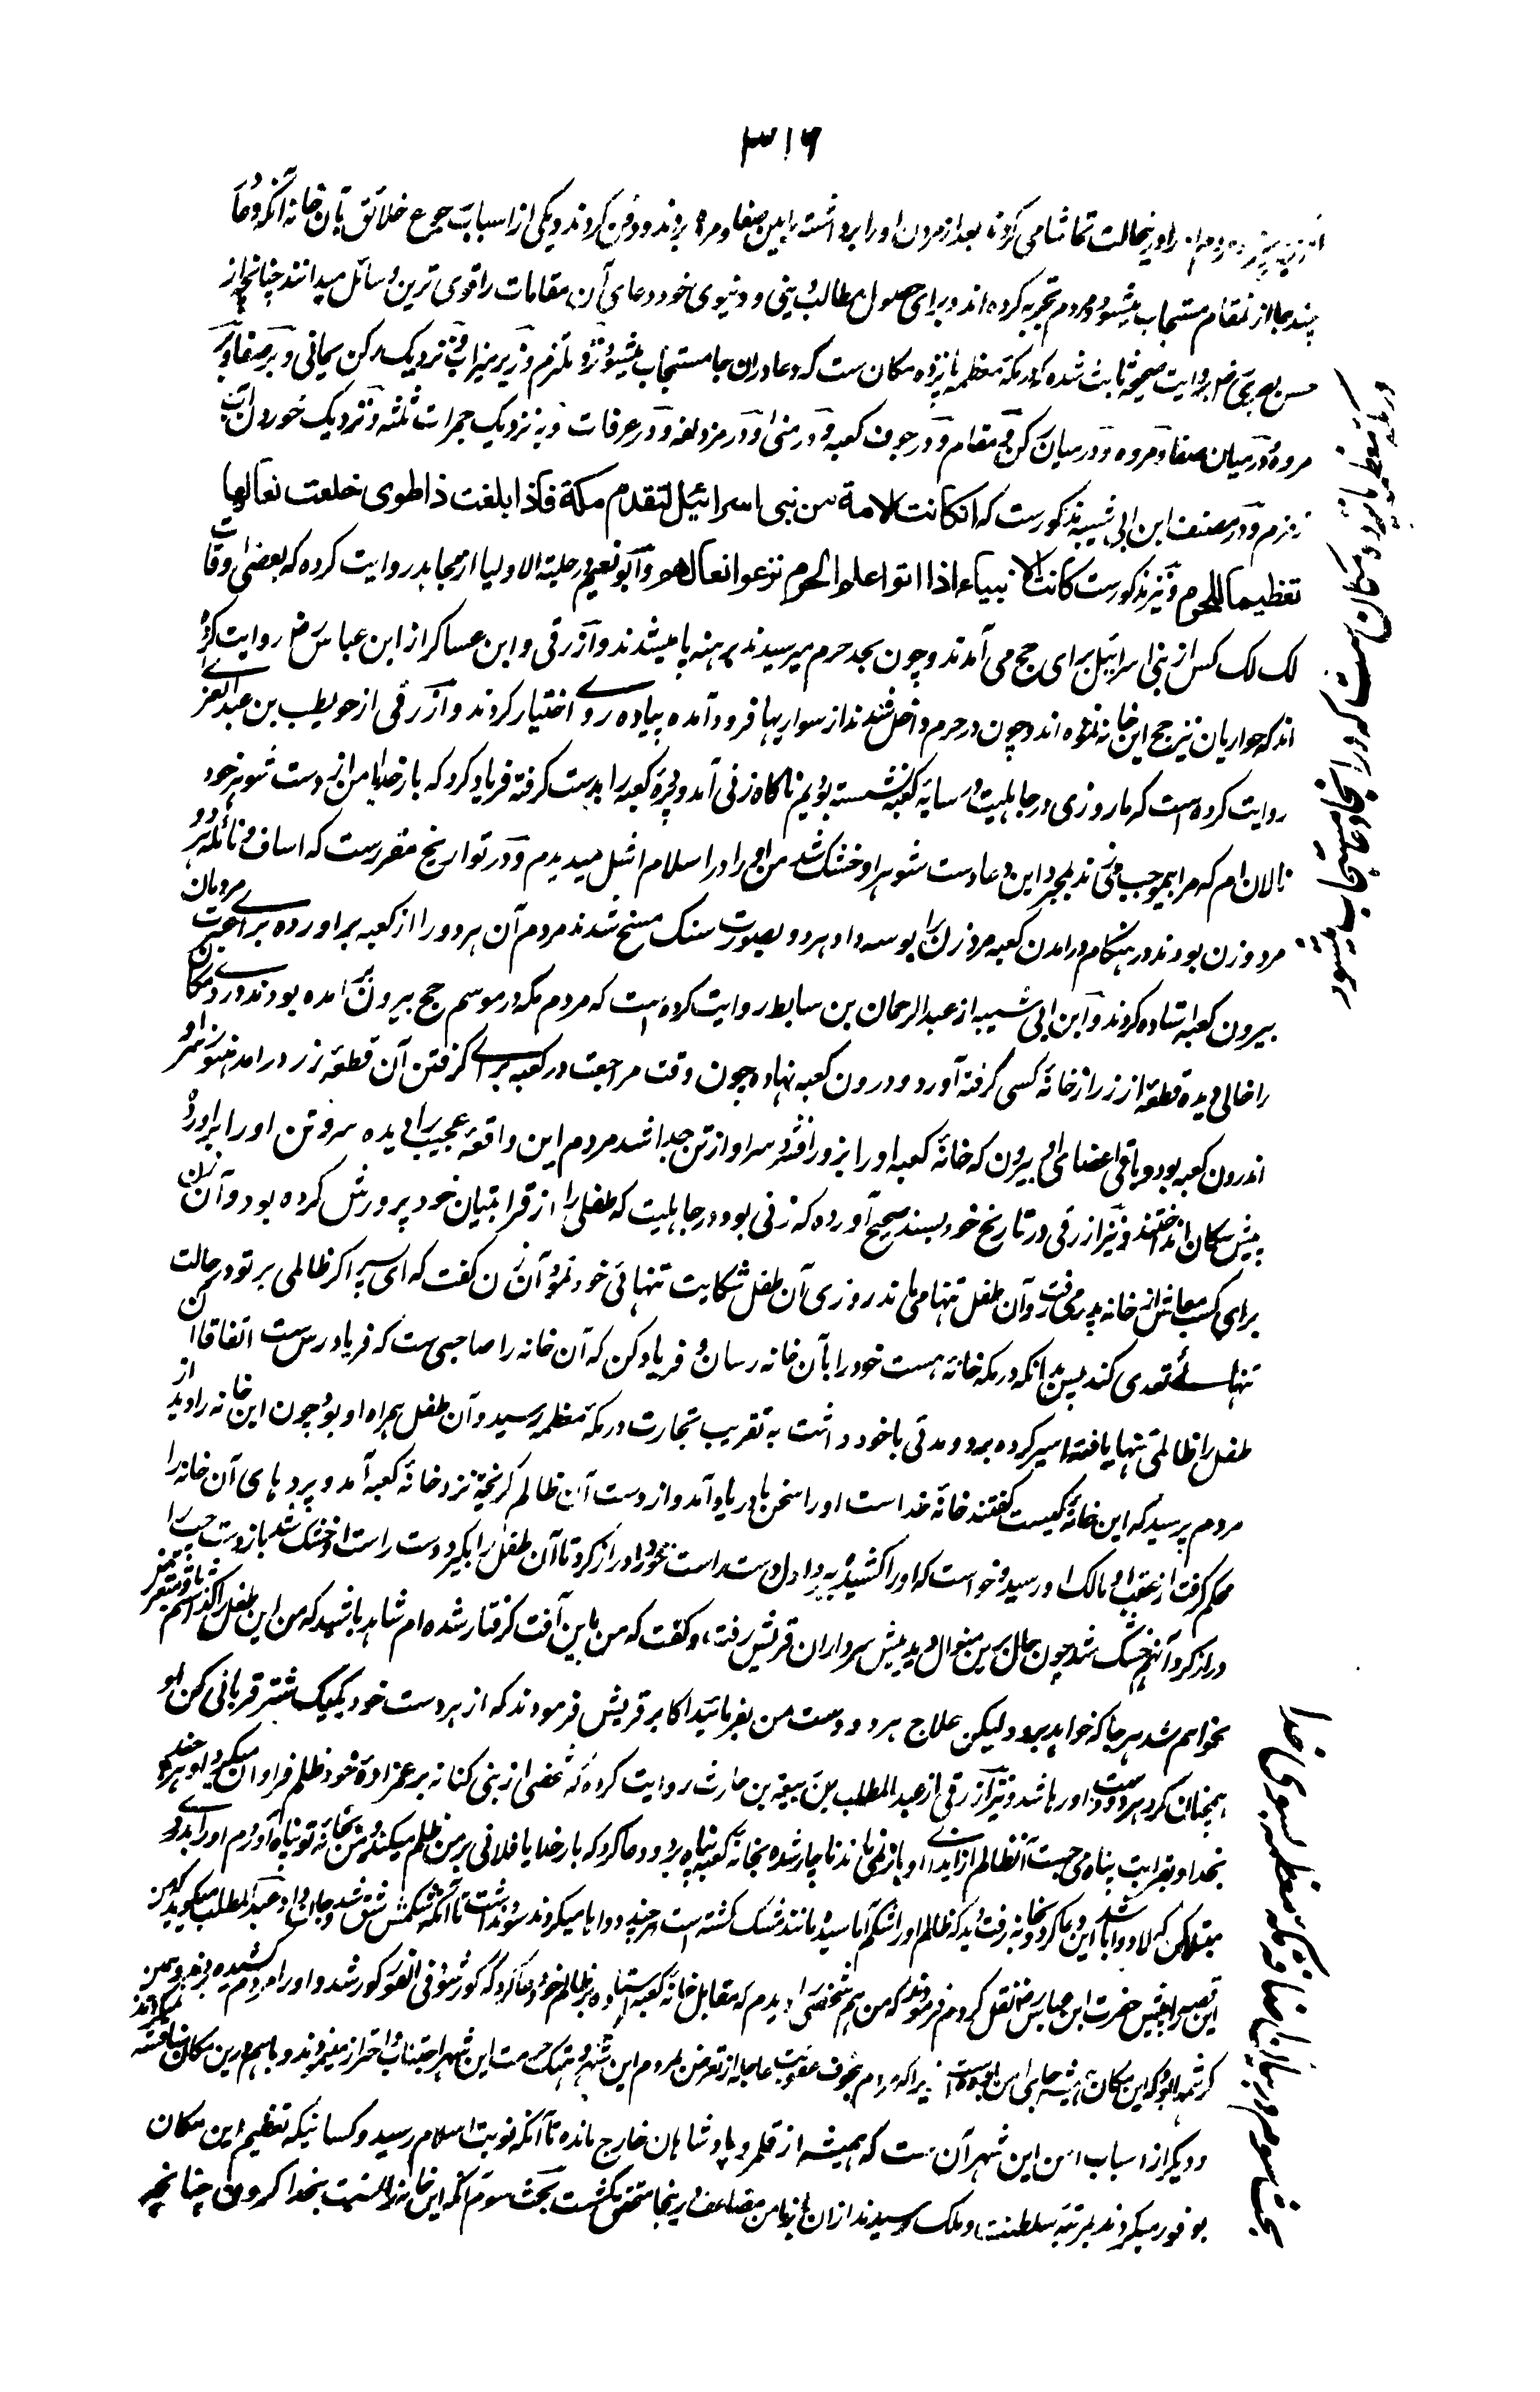 ۳۱۶
را درینحالت تماشا می کردند بعد از مردن او را برداشته مابین صفا و مروه بردند و دفن کردند و یکی از اسباب رجوع خلائق بآن خانه آنکه دعا
چند جا از نمقام مستجاب میشود و مردم تجربه کرده اند و برای حصول مطالب دینی و دنیوی خود دعای آن مقامات را قوی ترین وسائل میدانند چنانچه از
حسن بصری رض بروایت صحیح ثابت شده که در مکه معظمه پانزده مکان ست که دعا دران جا مستجاب میشود نزد ملتزم و زیر میزاب و نزدیک رکن یمانی و بر صفا و بر
مروه و درمیان صفا و مروه و درمیان رکن و مقام و در جوف کعبه و در منی و در مزدلفه و در عرفات و به نزدیک جمرات ثلثه و نزدیک خوردن آب
زمزم و در مصنف ابن ابی شیبه مذکورست که ان کانت الامة من بنی اسرائیل لتقدم مکة فاذا بلغت ذا طوی خلعت نعالها
تعظیما للحرم و نیز مذکورست کانت الانبیاء اذا اتوا علم الحرم نزعوا نعالهم و ابو نعیم در حلیة الاولیا از مجاهد روایت کرده که بعضی اوقات
لک لک کس از بنی اسرائیل برای حج می آمدند و چون بحد حرم میرسیدند برهنه پا میشدند و ازرقی و ابن عساکر از ابن عباس رض روایت کرده
اند که حواریان نیز حج این خانه نموده اند و چون در حرم داخل شدند از سواریها فرود آمده پیاده روی اختیار کردند و ازرقی از حویطب بن عبد العزی
روایت کرده است که ما روزی در جاهلیت در سایه کعبه نشسته بودیم ناگاه زنی آمد و پرده کعبه را بدست گرفته فریاد کرد که بار خدایا من از دست شوهر خود
نالان ام که مرا بیموجب می زند بمجرد این دعا دست شوهر او خشک شد من او را در اسلام اشل میدیدم و در تواریخ مقررست که اساف و نائله هر دو
مرد و زن بودند در هنگام درامدن کعبه مرد زن را بوسه داد هر دو بصورت سنگ مسخ شدند مردم آن هر دو را از کعبه براورده برای عبرت مردمان
بیرون کعبه استاده کردند و ابن ابی شیبه از عبد الرحمان بن سابط روایت کرده است که مردم مکه در موسم حج بیرون بر آمده بودند دزدی مکان
را خالی دیده قطعه از زر از خانه کسی گرفته آورد و درون کعبه نهاده چون وقت مراجعت در کعبه برای گرفتن آن قطعه زر درامد هنوز سر او
اندرون کعبه بود و باقی اعضای او بیرون که خانه کعبه او را بزور افشرد سر او از تن جدا شد مردم این واقعه عجیب را دیده سر و تن او را براورده
پیش سگان انداختند و نیز ازرقی در تاریخ خود بسند صحیح آورده که زنی بود در جاهلیت که طفلی را از قرابتیان خود پرورش کرده بود و آن زن
برای کسب معاش از خانه بدر می رفت و آن طفل تنها می ماند روزی آن طفل شکایت تنهائی خود نمود آن زن گفت که ای پسر اگر ظالمی بر تو در حالت
تنهائی تعدی کند پس بدانکه در مکه خانه هست خود را بآن خانه رسان و فریاد کن که آن خانه را صاحبی ست که فریادرس ست اتفاقا آن
طفل را ظالمی تنها یافته اسیر کرده برد و مدتی با خود داشت به تقریب تجارت در مکه معظمه رسید و آن طفل همراه او بود چون این خانه را دید از
مردم پرسید که این خانه کیست گفتند خانه خداست او را سخن مادر یاد آمد و از دست آن ظالم گریخته نزد خانه کعبه آمد و پردهای آن خانه را
محکم گرفت از عقب او مالک او رسید و خواست که او را کشیده ببرد اول دست راست خود را دراز کرد تا آن طفل را بگیرد دست راست او خشک شد باز دست چپ را
دراز کرد آنهم خشک شد چون حال برین منوال دید پیش سرداران قریش رفت و گفت که من باین آفت گرفتار شده ام شاهد باشید که من این طفل را گذاشتم باز متعرض
نخواهم شد هر جا که خواهد برود لیکن علاج هر دو دست من بفرمائید اکابر قریش فرمودند که از هر دست خود یک یک شتر قربانی کن او
همچنان کرد هر دو دست او رها شد و نیز ازرقی از عبد المطلب بن ربیعه بن حارث روایت کرده که شخصی از بنی کنانه بر عمزاده خود ظلم فراوان میکرد او هر چند
بخدا و بقرابت پناه می جست آن ظالم از ایذای او باز نمی ماند ناچار شده بخانه کعبه پناه برد و دعا کرد که بار خدایا فلانی بر من ظلم میکند و من بخانه تو پناه آورده ام او را بدردی
مبتلا کن که لا دوا باشد این دعا کرد و بخانه رفت دید که ظالم او را شکم آماسیده مانند مشک گشته است هر چند دواها میکردند سود نداشت تا آنکه شکمش شق شد و جان داد عبد المطلب میگوید که من
این قصه را پیش حضرت ابن عباس رض نقل کردم فرمودند که من هم شخصی را دیدم که مقابل خانه کعبه استاده بر ظالم خود دعا کرد که کور شود فی الفور کور شد و او را مردم کشیده می بردند و همین
کرشمه‌ها بود که این مکان همیشه جای امن بوده است زیرا که مردم بخوف عقوبت عاجله از تعرض مردم این شهر و هتک حرمت این شهر اجتناب و احتراز میفرمودند و باهم درین مکان مناقشه نمیکردند
و دیگر از اسباب امن این شهر آن ست که همیشه از قلمرو پادشاهان خارج مانده تا آنکه نوبت اسلام رسید و کسانیکه تعظیم این مکان
بوفور میکردند بمرتبه سلطنت و ملک رسیدند ازان باز امن مضاعف درینجا متحقق گشت بحث سوم آنکه این خانه را نسبت بخدا کردن چنانچه
بحث سوم در بیان خانه مکه معظمه بسوی خدا